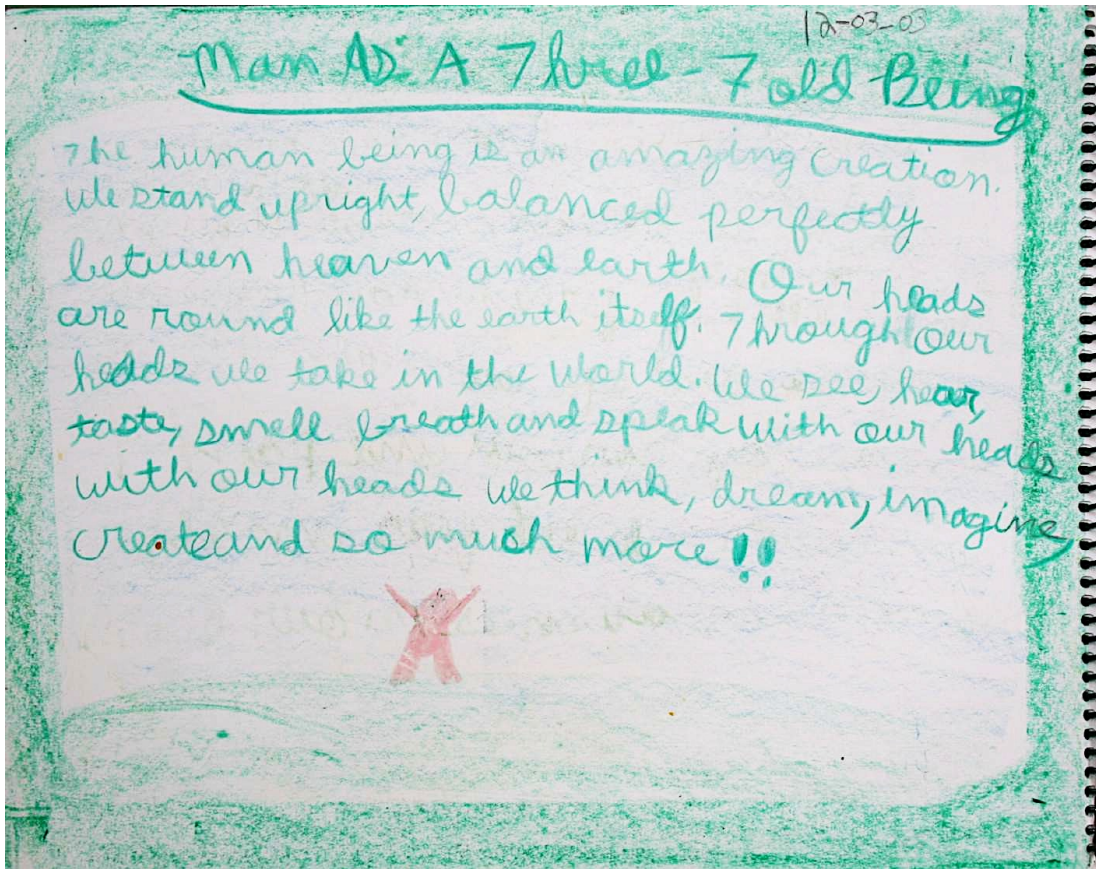 12-03-03
Man As A Three-Fold Being
The human being is an amazing creation.
We stand upright, balanced perfectly
between heaven and earth. Our heads
are round like the earth itself. Through our
heads we take in the world. We see, hear,
taste, smell breath and speak with our heads
with our heads we think, dream, imagine,
create and so much more!!